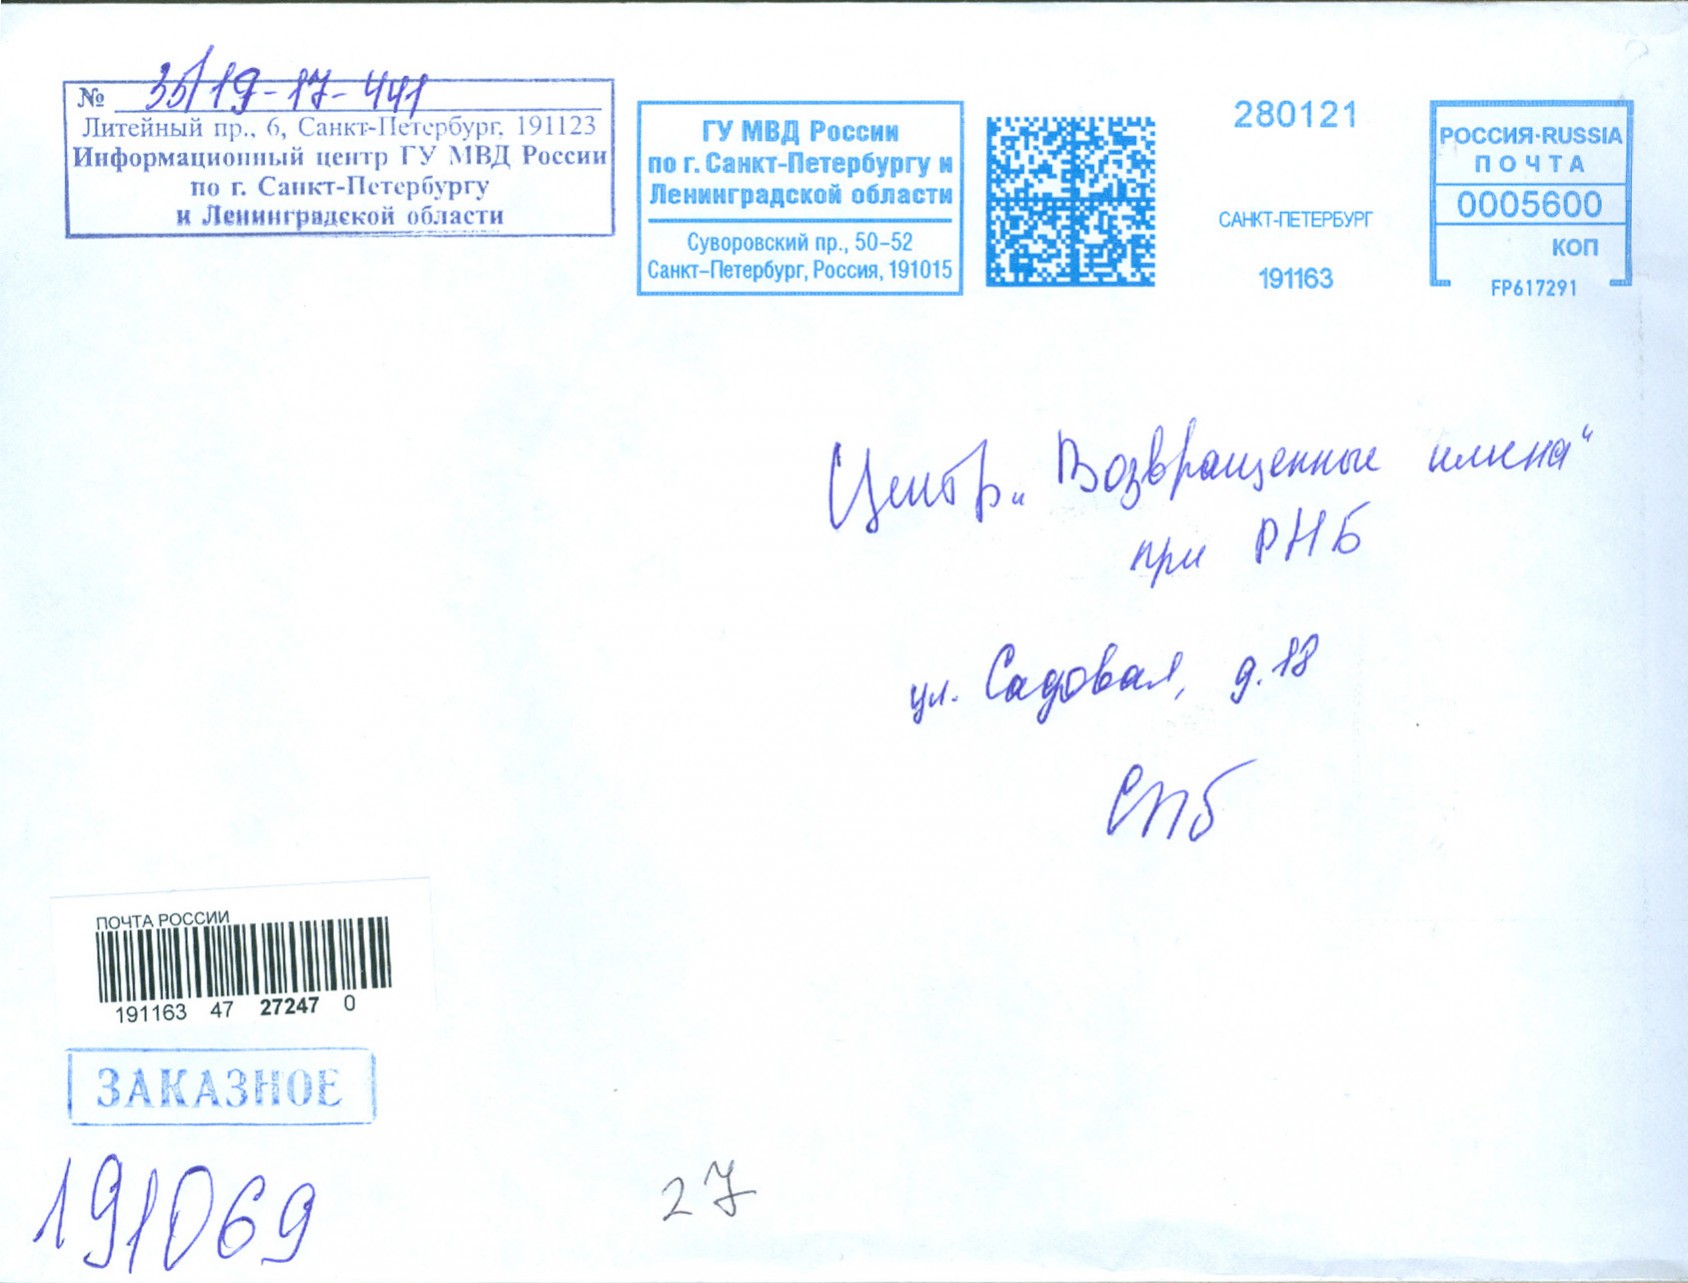 № 35/19-17-441
Литейный пр., 6, Санкт-Петербург, 191123
Информационный центр ГУ МВД России
по г. Санкт-Петербургу
и Ленинградской области
ГУ МВД России
по г. Санкт-Петербургу и
Ленинградской области
Суворовский пр., 50-52
Санкт-Петербург, Россия, 191015
280121
САНКТ-ПЕТЕРБУРГ
191163
РОССИЯ·RUSSIA
ПОЧТА
0005600
КОП
FP617291
Центр „Возвращенные имена“
при РНБ
ул. Садовая, д. 18
СПб
ПОЧТА РОССИИ
191163 47 27247 0
ЗАКАЗНОЕ
191069
27